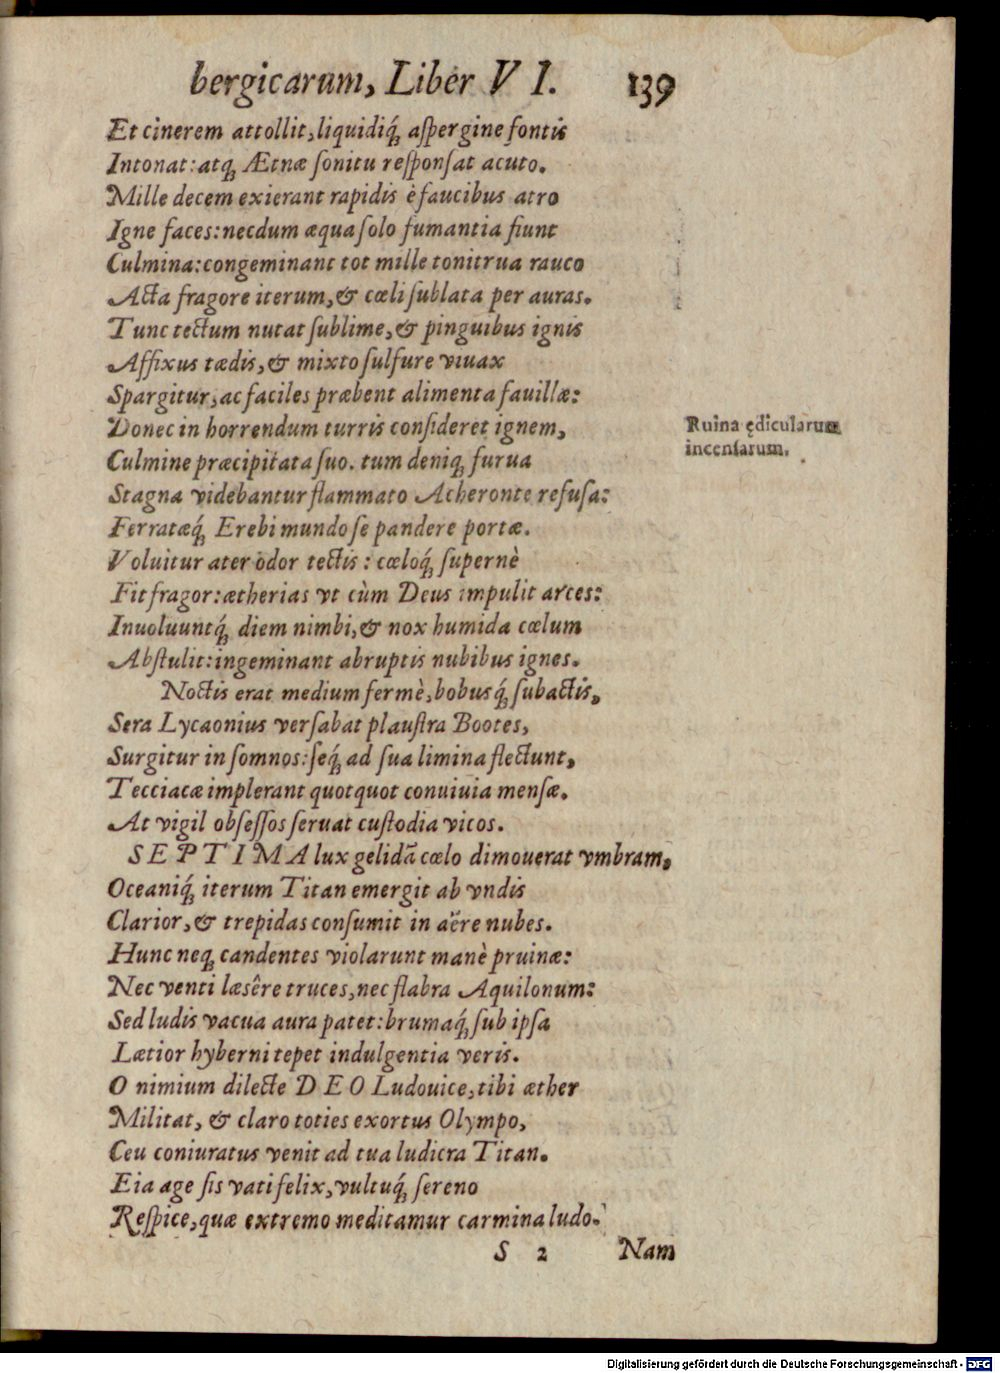 bergicarum, Liber VI. 139
Et cinerem attollit, liquidiq́; aſpergine fontis
Intonat: atq; Ætnæ ſonitu reſponſat acuto.
Mille decem exierant rapidis è faucibus atro
Igne faces: necdum æqua ſolo fumantia fiunt
Culmina: congeminant tot mille tonitrua rauco
Acta fragore iterum, & cœli ſublata per auras.
Tunc tectum nutat ſublime, & pinguibus ignis
Affixus tædis, & mixto ſulfure viuax
Spargitur, ac faciles præbent alimenta fauillæ:
Donec in horrendum turris conſideret ignem,
Ruina ędicularum
incenſarum.
Culmine præcipitata ſuo. tum deniq; furua
Stagna videbantur flammato Acheronte refuſa:
Ferratæq́; Erebi mundo ſe pandere portæ.
Voluitur ater odor tectis: cœloq́; ſupernè
Fit fragor: ætherias vt cùm Deus impulit arces:
Inuoluuntq́; diem nimbi, & nox humida cœlum
Abſtulit: ingeminant abruptis nubibus ignes.
Noctis erat medium fermè, bobusq́; ſubactis,
Sera Lycaonius verſabat plauſtra Bootes,
Surgitur in ſomnos: ſeq́; ad ſua limina flectunt,
Tecciacæ implerant quotquot conuiuia menſæ.
At vigil obſeſſos ſeruat cuſtodia vicos.
SEPTIMA lux gelidã cœlo dimouerat vmbram,
Oceaniq́; iterum Titan emergit ab vndis
Clarior, & trepidas conſumit in aëre nubes.
Hunc neq; candentes violarunt manè pruinæ:
Nec venti læsêre truces, nec flabra Aquilonum:
Sed ludis vacua aura patet: brumaq́; ſub ipſa
Lætior hyberni tepet indulgentia veris.
O nimium dilecte DEO Ludouice, tibi æther
Militat, & claro toties exortus Olympo,
Ceu coniuratus venit ad tua ludicra Titan.
Eia age ſis vati felix, vultuq́; ſereno
Reſpice, quæ extremo meditamur carmina ludo.
S 2 Nam
Digitalisierung gefördert durch die Deutsche Forschungsgemeinschaft - DFG